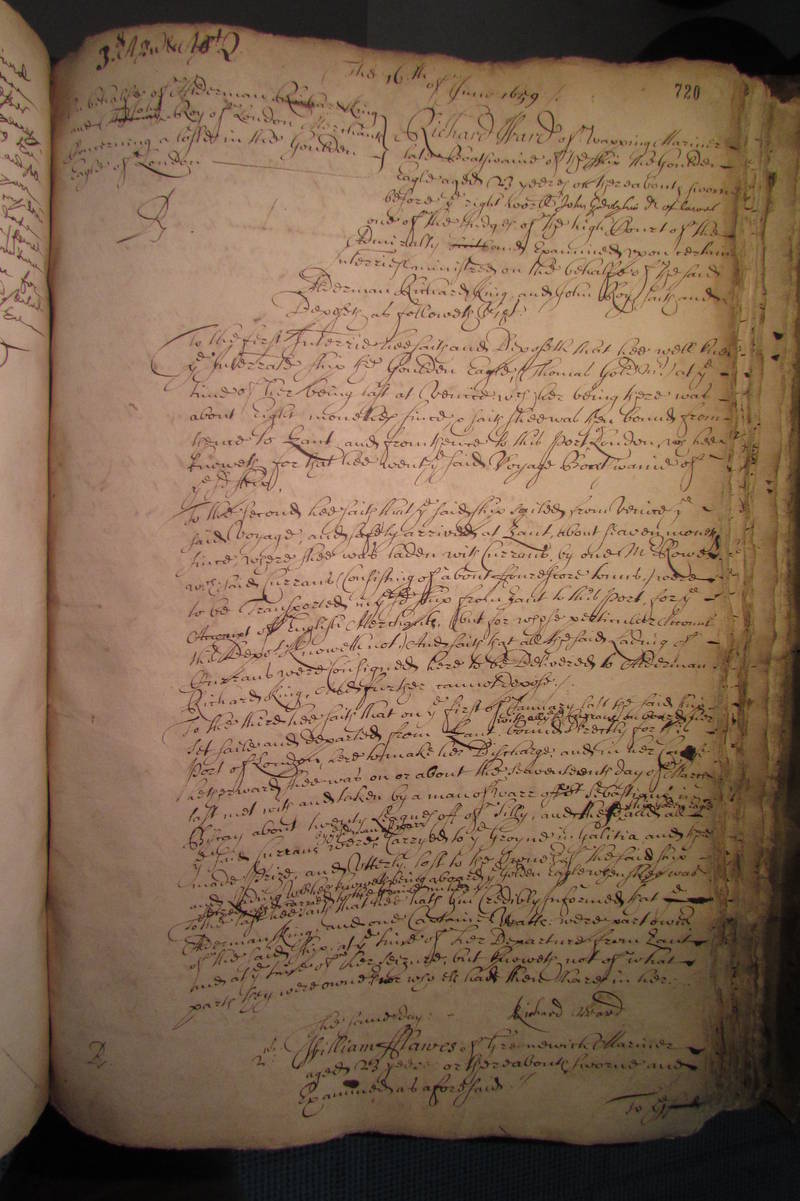 The 16th of June 1659
720
On behalfe of Alderman Richard King
and John Roy of London Merchants
Concerning a losse in the Goulden
Eagle of London
Richard Ward of Wapping Mariner
late Boatswaine of the ship the Goulden
Eagle aged 23 yeeres or thereabouts sworne
before ye right worll John Godolphin dr of lawes
one of the Judges of the high Court of the
Admiralty and Examined upon certaine
Interries ministred on the behalfe of the said
Alderman Richard King, and John Roy saith and
Deposeth as followeth vizt.
To the first Interrie hee saith and Deposeth that hee well knew
ye Interrate ship the Goulden Eagle, (Thomas Gold Mr) at ye
time of her being last at Venice, wch her being there was
about Eight moneths since saith shee was then bound from
thence to Zant and from thence to this Port of London, wch hee
knoweth for that hee went ye said Voyage Boatswaine of
ye sd ship,
To the second hee saith that ye said ship sailed from Venice ye
said Voyage, and safely arrived at Zant, about seaven moneths
since, where shee was laden with Currans, by one Mr Rowe
wch said Currans (Consisting of about ffourescore tonns,) were
to be Transported in ye sd ship from Zant to this Port, for ye
Accompt of English Merchants, (but for whose perticuler Accompt
this Depot knoweth not,) And saith that all the said Lading of
Currans were Consigned here to be Delivered to Alderman
Richard King, And further cannot Depose
To the third hee saith that on ye first of January last the said ship
with all the Currans on board her
set saile and departed from Zant bound Directly for this
Port of London, here to make her Discharge, and in her Course
hetherward shee was on or about the seaventeenth day of March
last met with and taken by a man of warr of St Sebastians in
Biscay about twenty Leagues off of Silly, and shee and all
ye said Currans were Carryed to ye Groyne in Galitia and there
made Prize, and Utterly lost to the Owners of the said ship
and lading, wch hee knoweth being aboard ye Golden Eagle when shee was
To the last hee saith that hee hath bin Credibly informed that ye
Alderman King, and one Captaine Watts were part owners
of the said ship, at ye time of her Departure from Zant
and at ye time of her seizure, but knoweth not of what
parts they were owners nor who els had then share in her.
The same day:
Richard Ward
2us. William Hawes of Greenewich Mariner
aged 23 yeeres or thereabouts sworne and
Examined as aforesaid
To ye